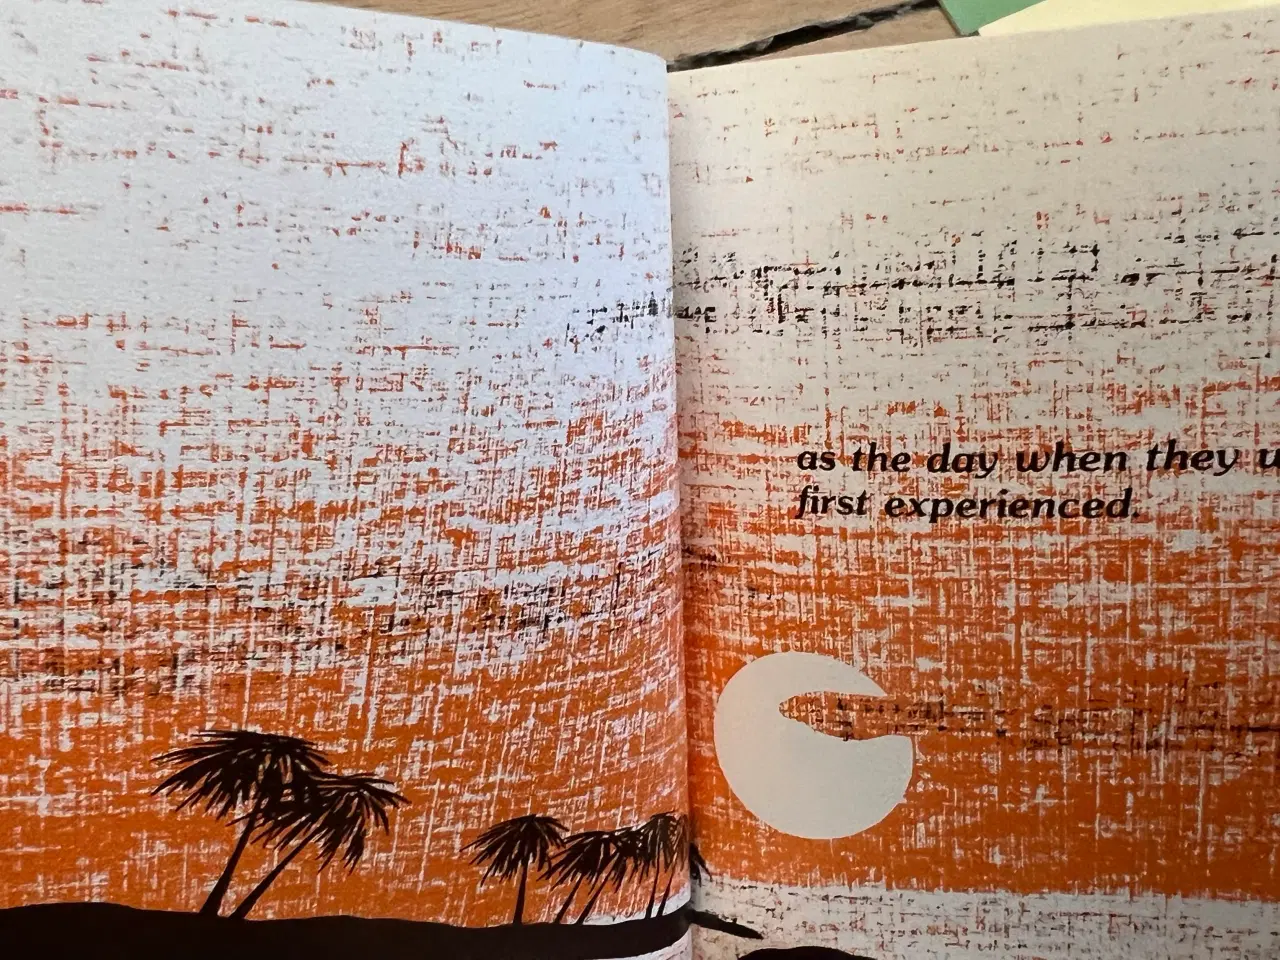 as the day when they
first experienced.